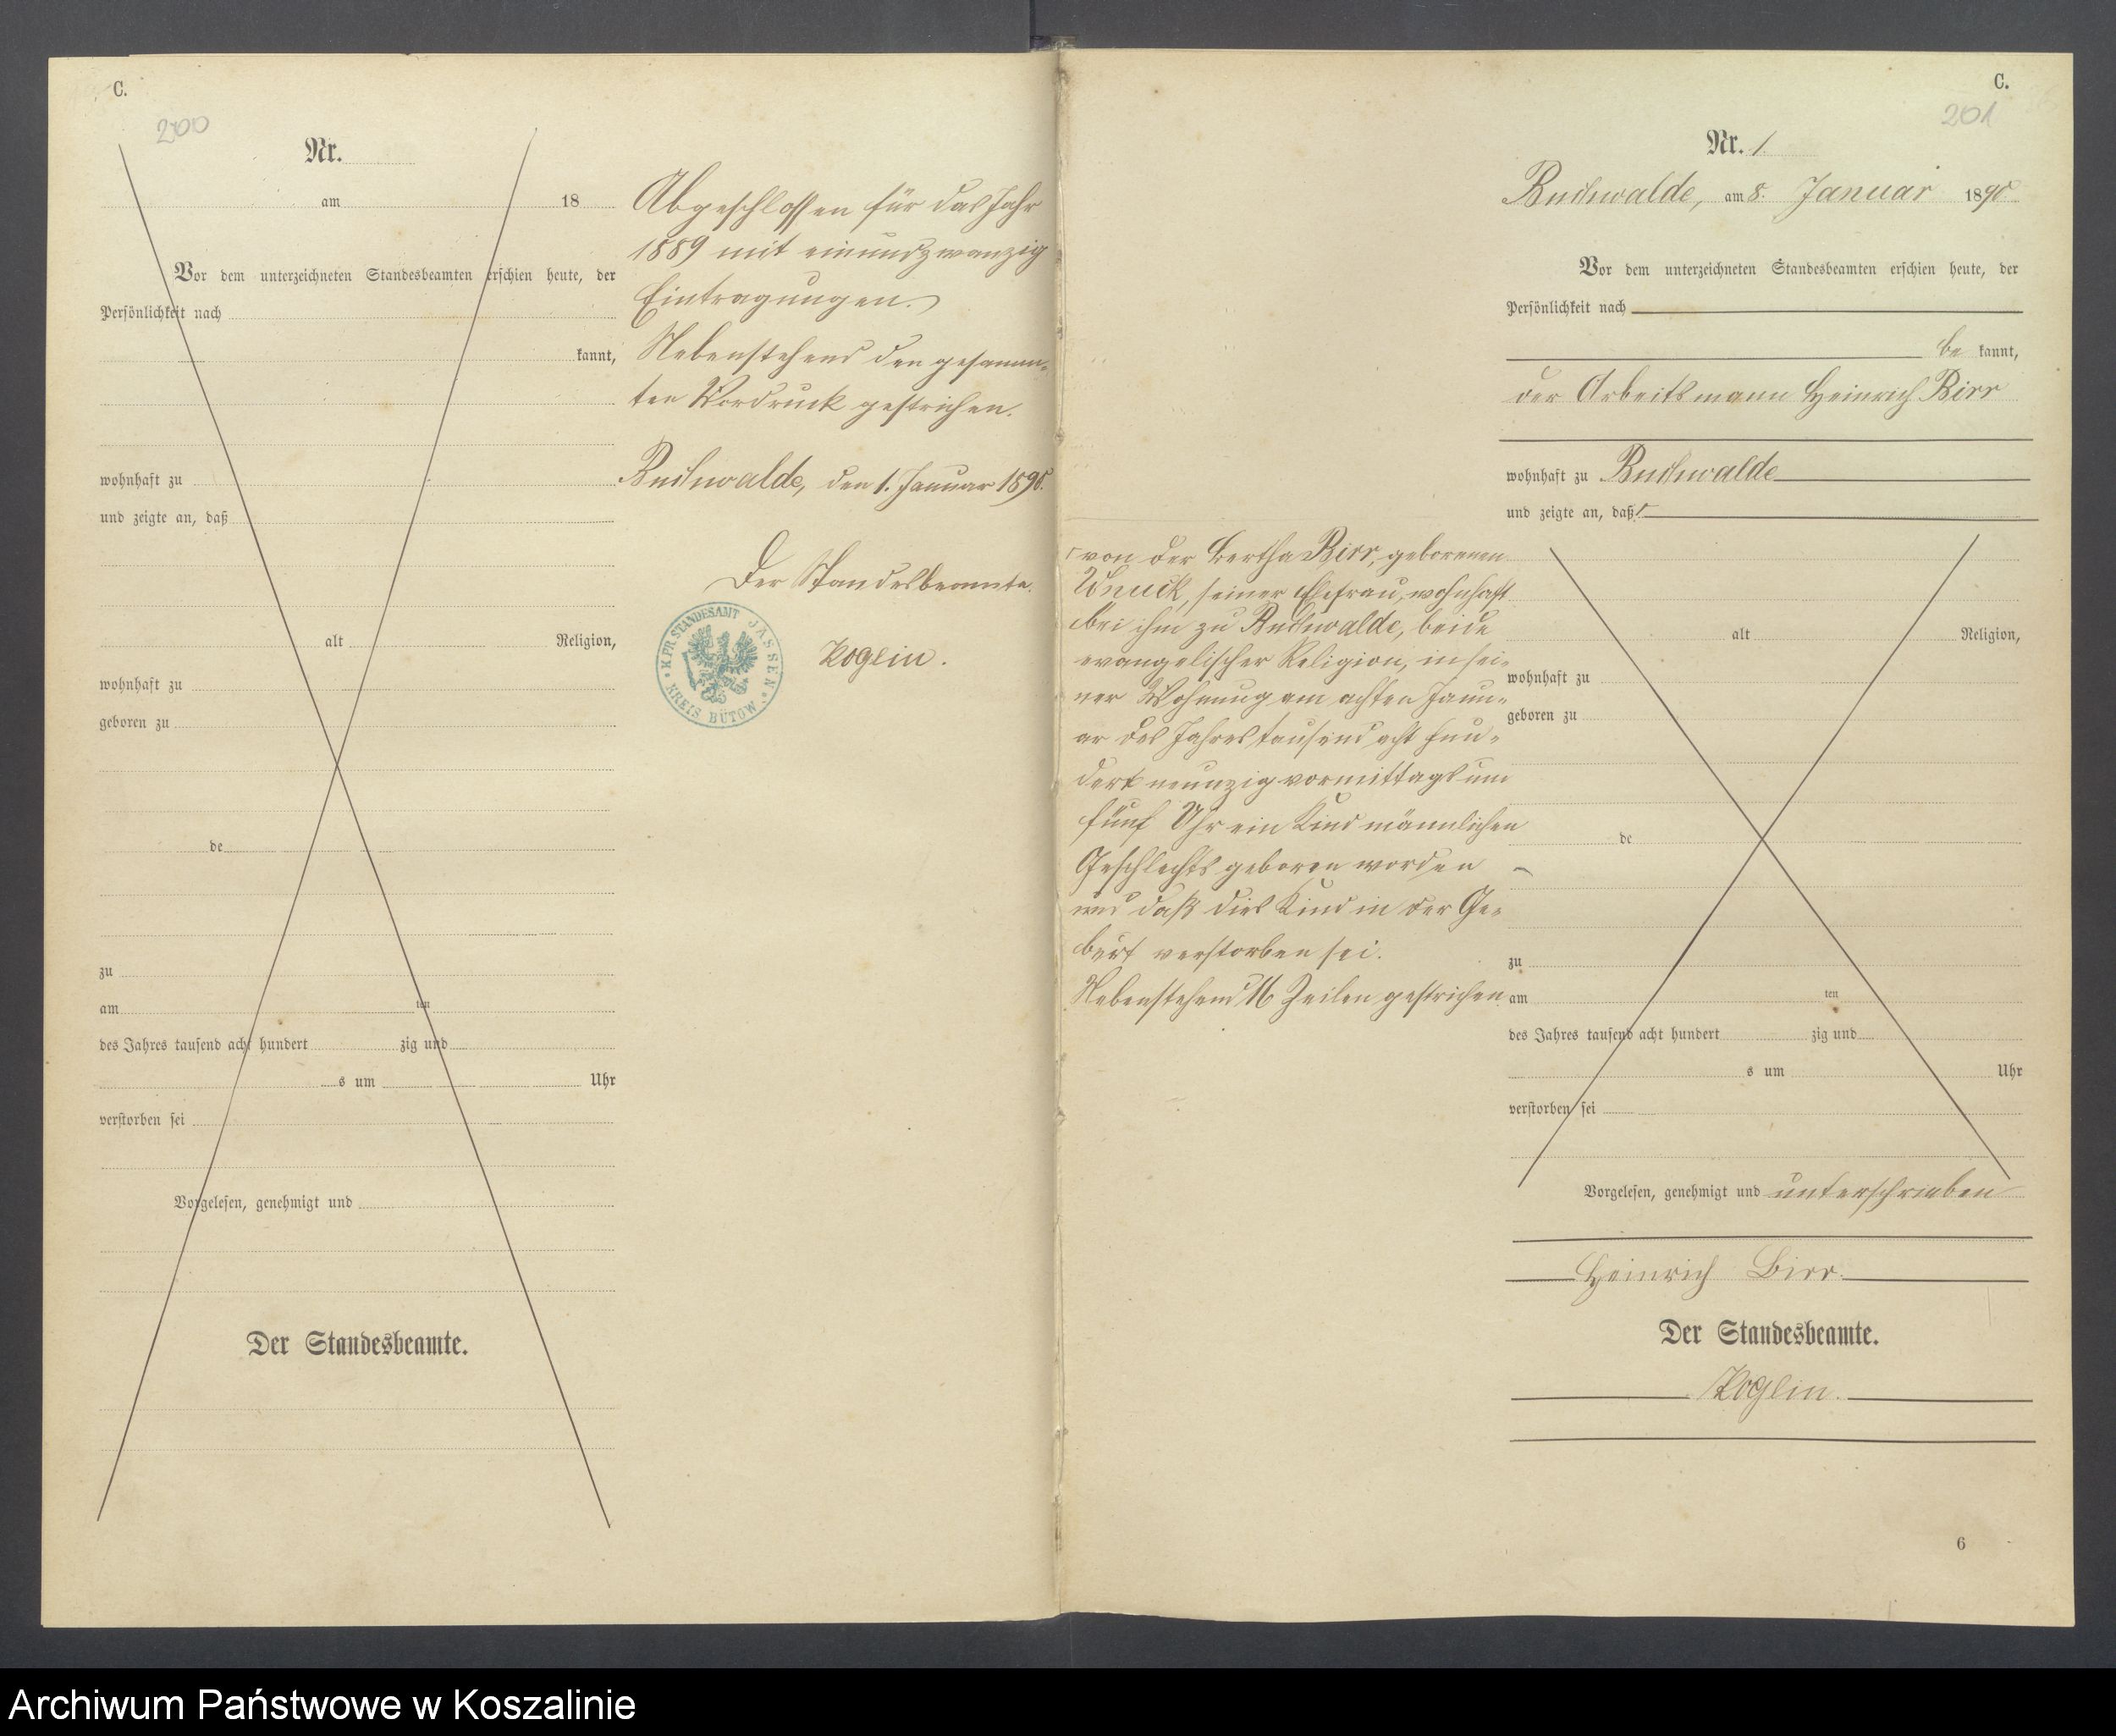 C.
200
Nr.
am 18
Vor dem unterzeichneten Standesbeamten erschien heute, der
Persönlichkeit nach
kannt,
wohnhaft zu
und zeigte an, daß
alt Religion,
wohnhaft zu
geboren zu
de
zu
am ten
des Jahres tausend acht hundert zig und
s um Uhr
verstorben sei
Vorgelesen, genehmigt und
Der Standesbeamte.
Abgeschlossen für das Jahr
1889 mit einundzwanzig
Eintragungen.
Nebenstehend den gesamm-
ten Vordruck gestrichen.
Buchwalde, den 1. Januar 1890.
Der Standesbeamte.
Koglin.
K. PR. STANDESAMT JASSEN
KREIS BÜTOW
C.
201
Nr. 1.
Buchwalde, am 8. Januar 1890
Vor dem unterzeichneten Standesbeamten erschien heute, der
Persönlichkeit nach
be kannt,
der Arbeitsmann Heinrich Birr
wohnhaft zu Buchwalde
und zeigte an, daß
von der Bertha Birr, geborenen
Wnuck, seiner Ehefrau, wohnhaft
bei ihm zu Buchwalde, beide
evangelischer Religion, in sei-
ner Wohnung am achten Janu-
ar des Jahres tausend acht hun-
dert neunzig vormittags um
fünf Uhr ein Kind männlichen
Geschlechts geboren worden
und daß dies Kind in der Ge-
burt verstorben sei.
Nebenstehend 16 Zeilen gestrichen
alt Religion,
wohnhaft zu
geboren zu
de
zu
am ten
des Jahres tausend acht hundert zig und
s um Uhr
verstorben sei
Vorgelesen, genehmigt und unterschrieben
Heinrich Birr.
Der Standesbeamte.
Koglin.
6
Archiwum Państwowe w Koszalinie